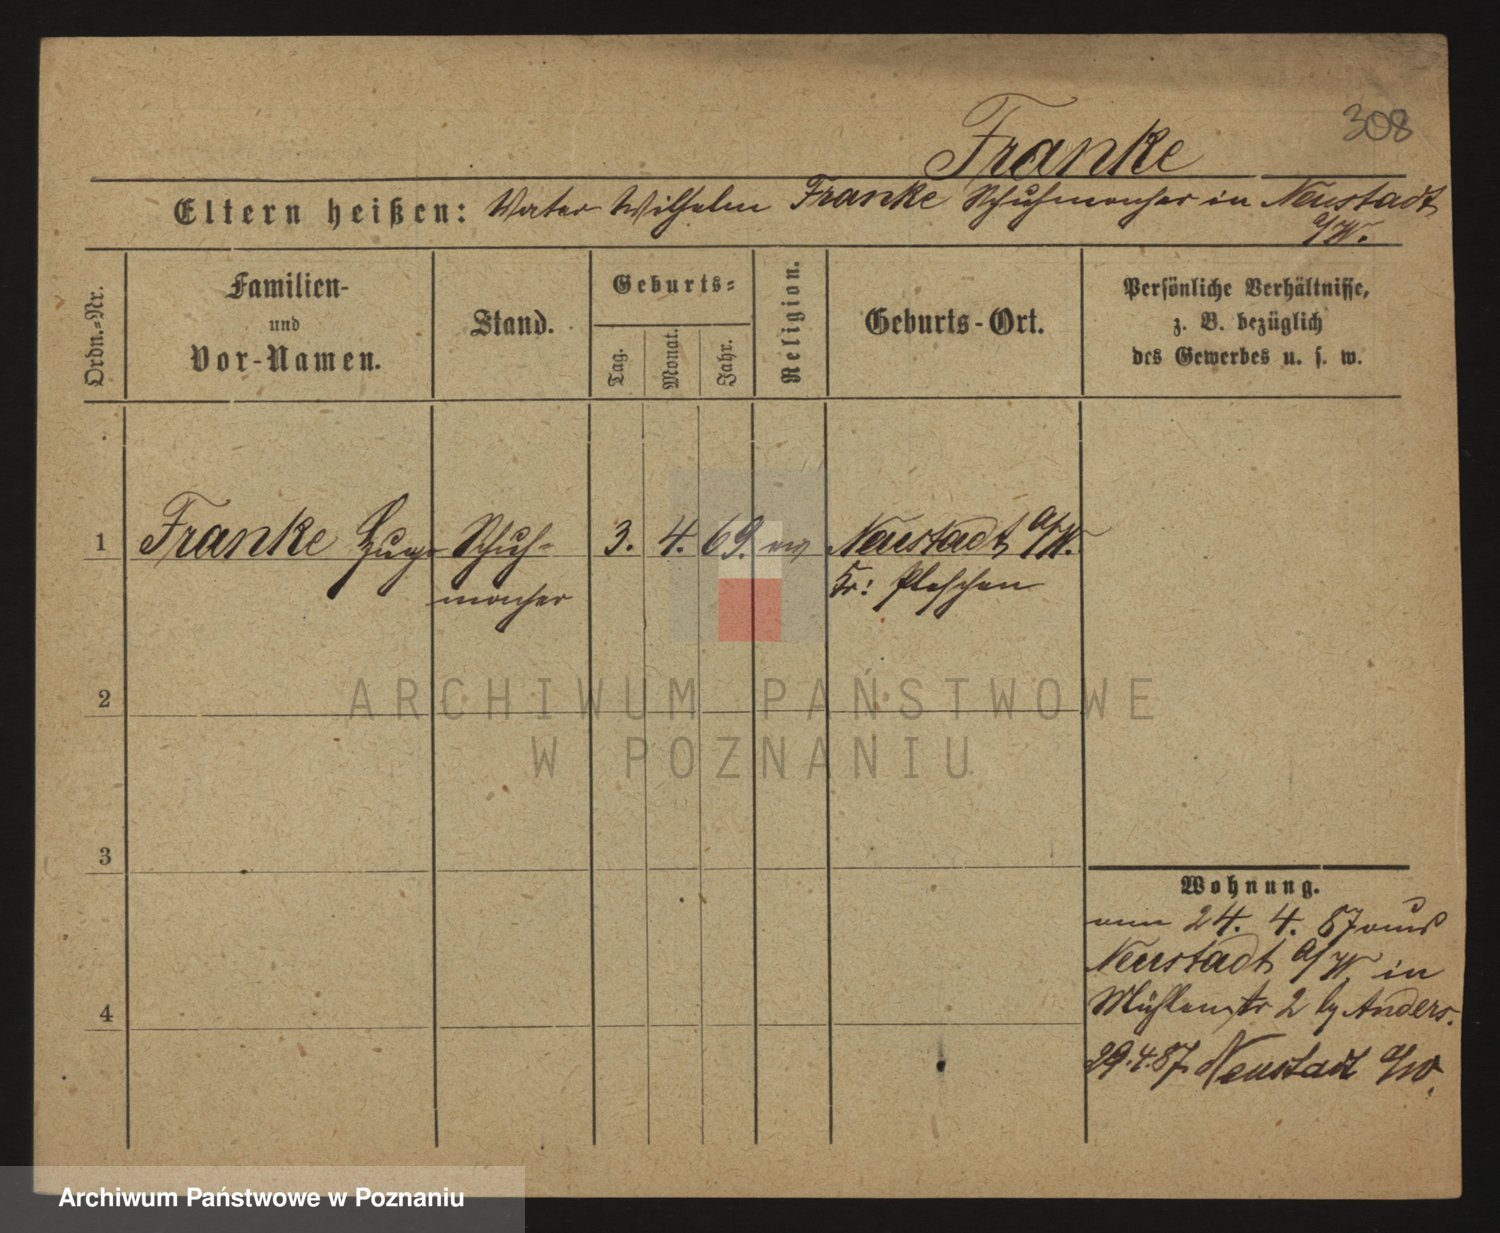 308
Franke
Eltern heißen: Vater Wilhelm Franke Schuhmacher in Neustadt
a/W.
Ordn.-Nr.
Familien-
und
Vor-Namen.
Stand.
Geburts-
Tag.
Monat.
Jahr.
Religion.
Geburts-Ort.
Persönliche Verhältnisse,
z. B. bezüglich
des Gewerbes u. s. w.
1 Franke Hugo Schuh- 3. 4. 69. ev Neustadt a/W.
macher Kr: Pleschen
2
3
4
Wohnung.
24. 4. 87 aus
Neustadt a/W. in
Mühlenstr 2 by Anders.
29.4.87 Neustadt a/W.
ARCHIWUM PAŃSTWOWE
W POZNANIU
Archiwum Państwowe w Poznaniu